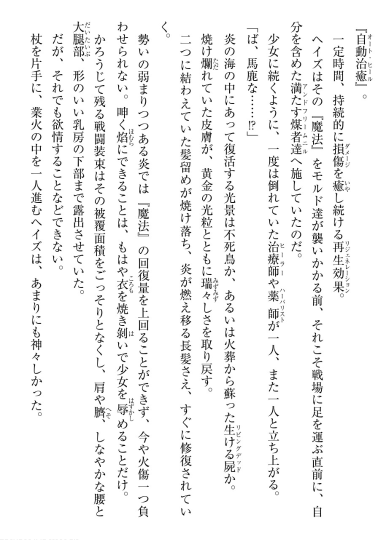 『自動治癒（オート・ヒール）』。
一定時間、持続的に損傷（ダメージ）を癒（いや）し続ける再生効果（リジェネレーション）。
ヘイズはその『魔法』をモルド達が襲いかかる前、それこそ戦場に足を運ぶ直前に、自
分を含めた満たす煤者達（アンドフリームニル）へ施していたのだ。
少女に続くように、一度は倒れていた治療師（ヒーラー）や薬師（ハーバリスト）が一人、また一人と立ち上がる。
「は、馬鹿な……⁉」
炎の海の中にあって復活する光景は不死鳥か、あるいは火葬から蘇った生ける屍（リビングデッド）か。
焼け爛（ただ）れていた皮膚が、黄金の光粒とともに瑞々（みずみず）しさを取り戻す。
二つに結わえていた髪留めが焼け落ち、炎が燃え移る長髪さえ、すぐに修復されてい
く。
勢いの弱まりつつある炎では『魔法』の回復量を上回ることができず、今や火傷一つ負
わせられない。呻く焰（ほむら）にできることは、もはや衣（ころも）を焼き剝（は）いで少女を辱（はずかし）めることだけ。
かろうじて残る戦闘装束はその被覆面積をごっそりとなくし、肩や臍（へそ）、しなやかな腰と
大腿部（だいたいぶ）、形のいい乳房の下部まで露出させていた。
だが、それでも欲情することなどできない。
杖を片手に、業火の中を一人進むヘイズは、あまりにも神々しかった。